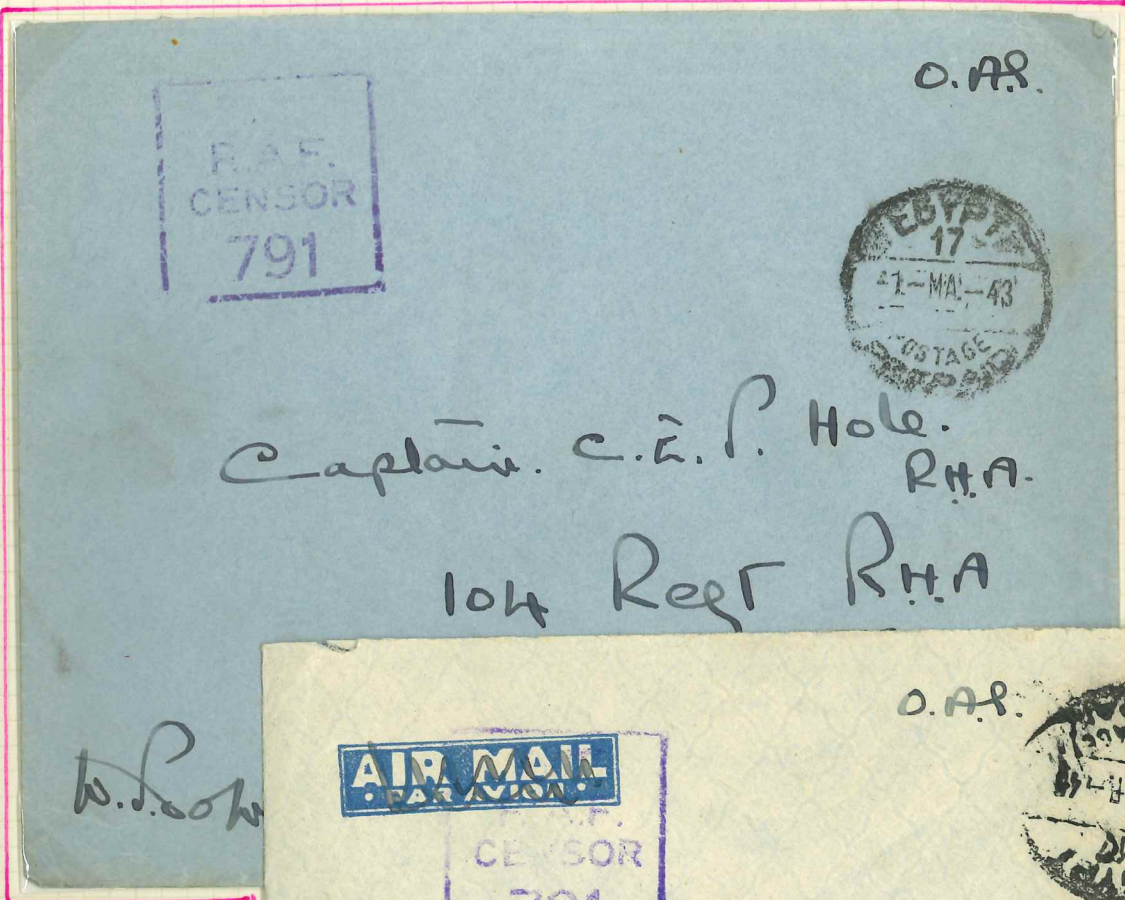 O.A.S.
R.A.F.
CENSOR
791
EGYPT
17
-MA-43
POSTAGE
PREPAID
Captain. C.E.S. Hole.
R.H.A.
104 Regt R.H.A
O.A.S.
AIR MAIL
PAR AVION
R.A.F.
CENSOR
791